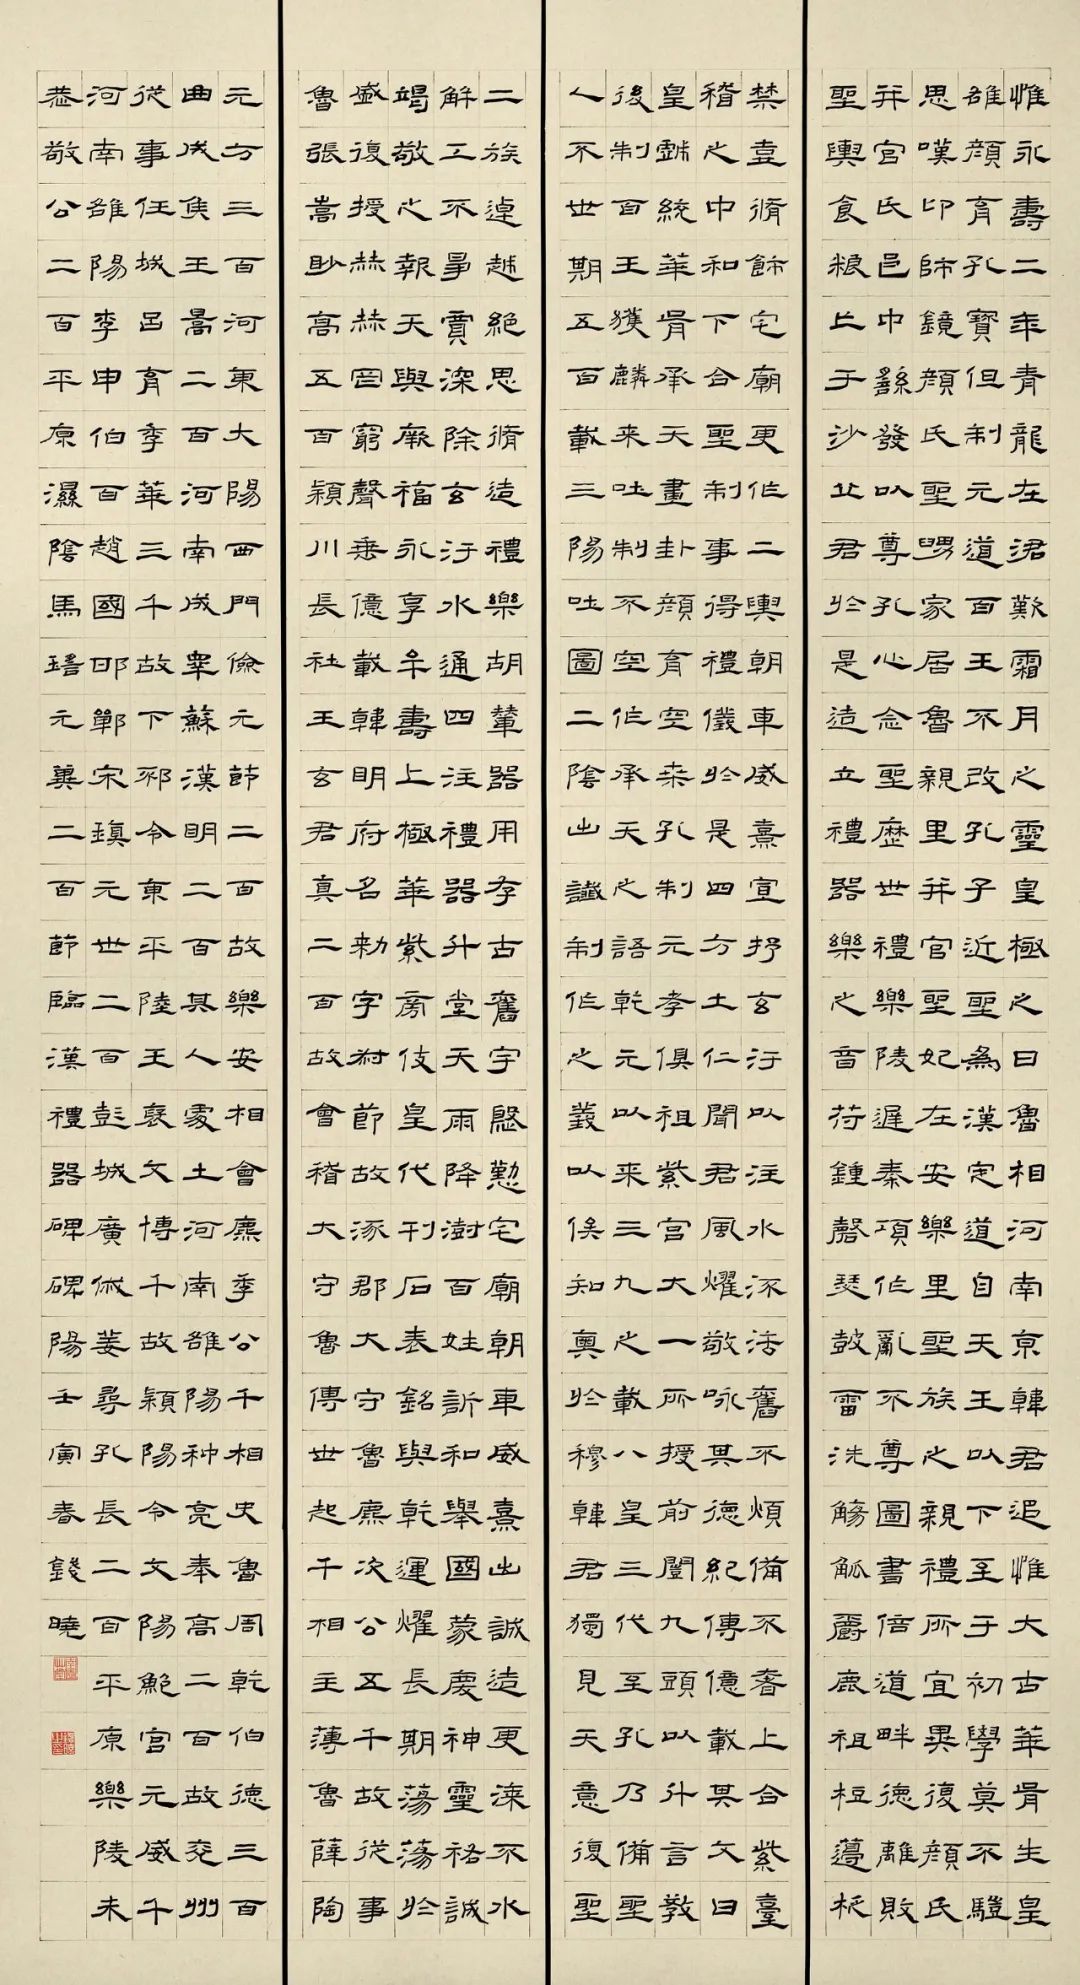 惟永壽二年青龍在涒歎霜月之靈皇極之日魯相河南京韓君追惟大古華胥生皇
雄顏育孔寶但制元道百王不改孔子近聖為漢定道自天王以下至于初學莫不驥
思嘆卬師鏡顏氏聖舅家居魯親里并官聖妃在安樂里聖族之親禮所宜異復顏氏
并官氏邑中繇發以尊孔心念聖歷世禮樂陵遲秦項作亂不尊圖書倍道畔德離敗
聖輿食粮亡于沙丘君於是造立禮器樂之音符鍾磬瑟鼓雷洗觴觚爵鹿柤梪籩柉
禁壺脩飾宅廟更作二輿朝車威熹宣抒玄汙以注水流法舊不煩備不奢上合紫臺
稽之中和下合聖制事得禮儀於是四方士仁聞君風燿敬咏其德紀傳億載其文曰
皇戲統華胥承天畫卦顏育空桑孔制元孝俱祖紫宮大一所授前闓九頭以斗言教
後制百王獲麟来吐制不空作承天之語乾元以来三九之載八皇三代至孔乃備聖
人不世期五百載三陽吐圖二陰出讖制作之義以俟知奧於穆韓君獨見天意復聖
二族逴越絕思脩造禮樂胡輦器用存古舊宇慇懃宅廟朝車威熹出誠造更漆不水
解工不爭賈深除玄汙水通四注禮器升堂天雨降澍百姓訢和舉國蒙慶神靈祐誠
竭敬之報天與厥福永享牟壽上極華紫旁伎皇代刊石表銘與乾運燿長期蕩蕩於
盛復授赫赫罔窮聲垂億載韓明府名勑字叔節故涿郡大守魯廉次公五千故從事
魯張嵩眇高五百穎川長社王玄君真二百故會稽大守魯傅世起千相主薄魯薛陶
元方三百河東大陽西門儉元節二百故樂安相魯廉季公千相史魯周乾伯德三百
曲成侯王暠二百河南成睪蘇漢明二百其人處土河南雒陽种亮奉高二百故兗州
從事任城呂育季華三千故下邳令東平陸王褒文博千故穎陽令文陽鮑宮元威千
河南雒陽李申伯百趙國邯鄲宋瑱元世二百彭城廣俅姜尋孔長二百平原樂陵朱
恭敬公二百平原濕陰馬瑤元冀二百節臨漢禮器碑碑陽壬寅春錢曉